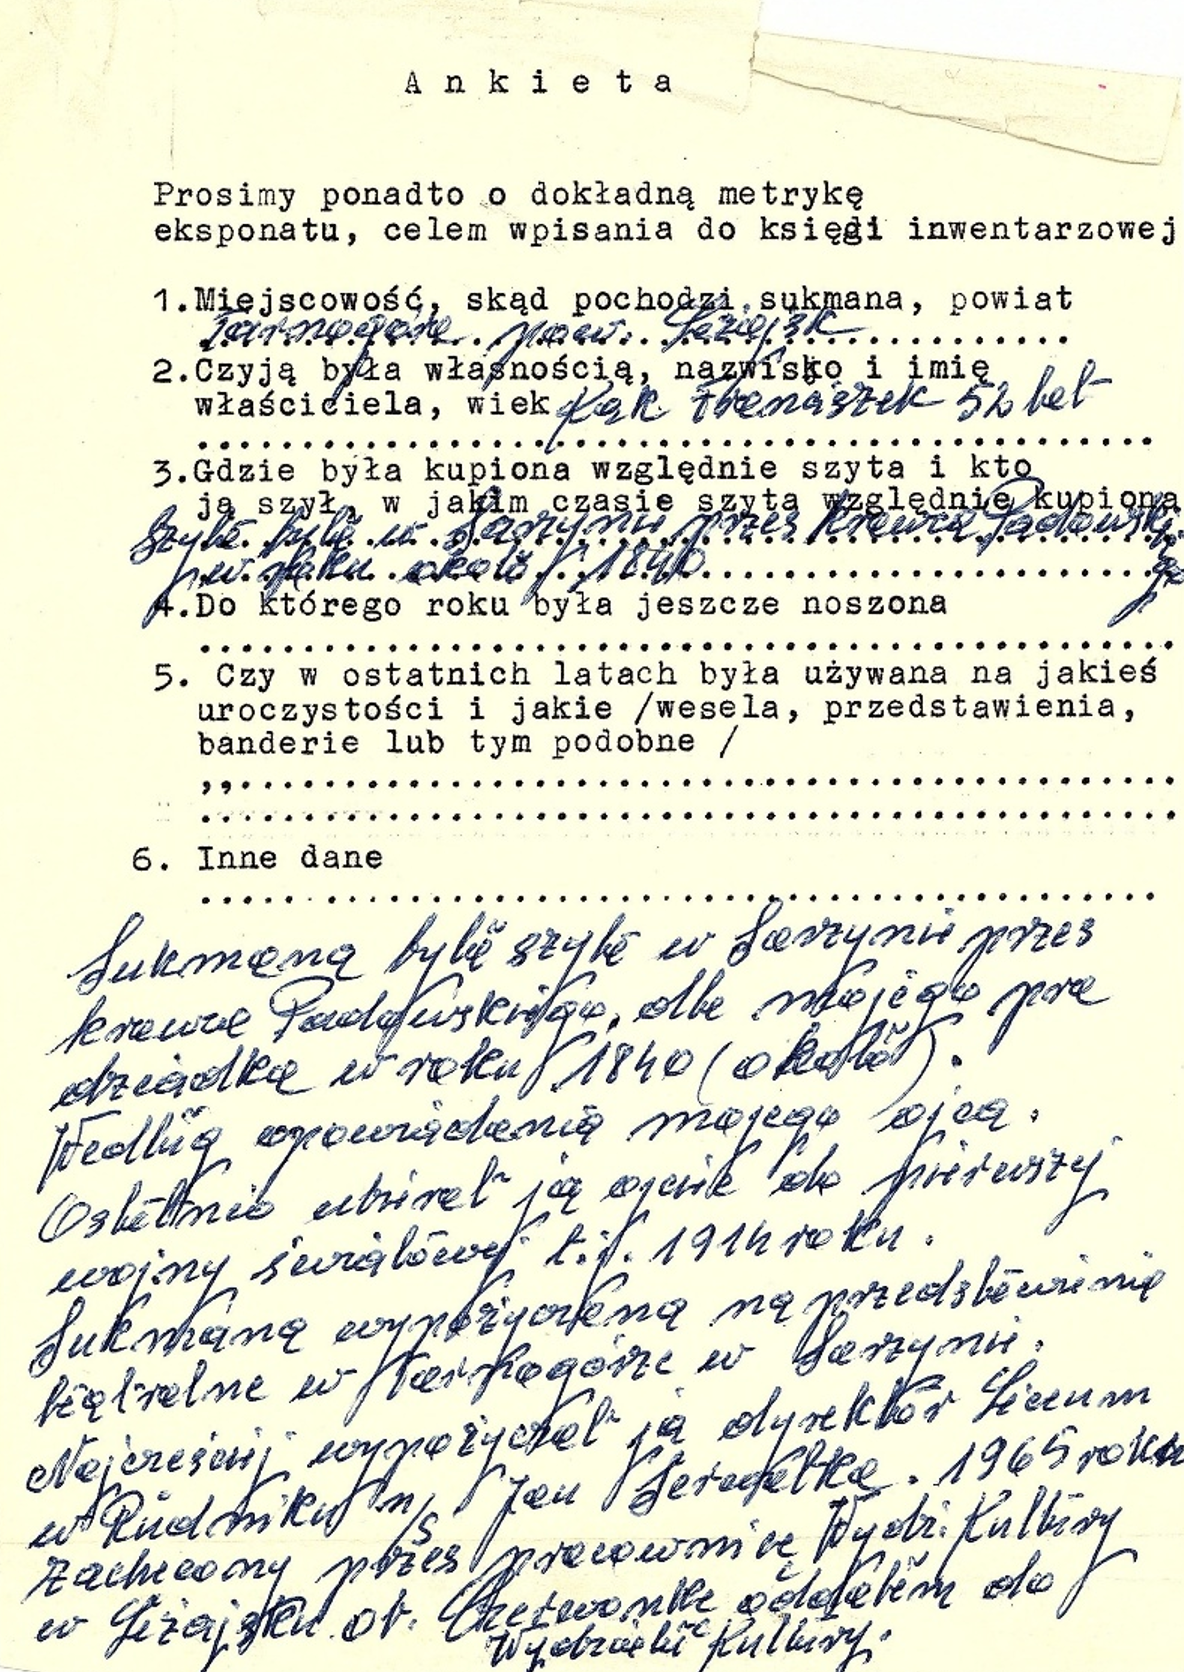 Ankieta
Prosimy ponadto o dokładną metrykę
eksponatu, celem wpisania do księgi inwentarzowej
1.Miejscowość, skąd pochodzi sukmana, powiat
Tarnogóra pow. Leżajsk
2.Czyją była własnością, nazwisko i imię
właściciela, wiek Kąk Franciszek 52 lat
3.Gdzie była kupiona względnie szyta i kto
ją szył, w jakim czasie szyta względnie kupiona
Szyta była w Sarzynie przez krawca Padowskie
go
w roku około 1840
4.Do którego roku była jeszcze noszona
5. Czy w ostatnich latach była używana na jakieś
uroczystości i jakie /wesela, przedstawienia,
banderie lub tym podobne /
6. Inne dane
Sukmana była szyta w Sarzynie przez
krawca Padowskiego, dla mojego pra
dziadka w roku 1840 (około).
Według opowiadania mojego ojca.
Ostatnio ubierał ją ojciec do pierwszej
wojny światowej t.j. 1914 roku.
Sukmana wypożyczana na przedstawienia
teatralne w Tarnogórze w Sarzynie.
Najcześciej wypożyczał ją dyrektor Liceum
w Rudniku n/S Jan . 1965 roku
zachecony przez pracownice Wydz. Kultury
w Leżajsku ob. Czerwonke oddałem do
Wydziału Kultury.